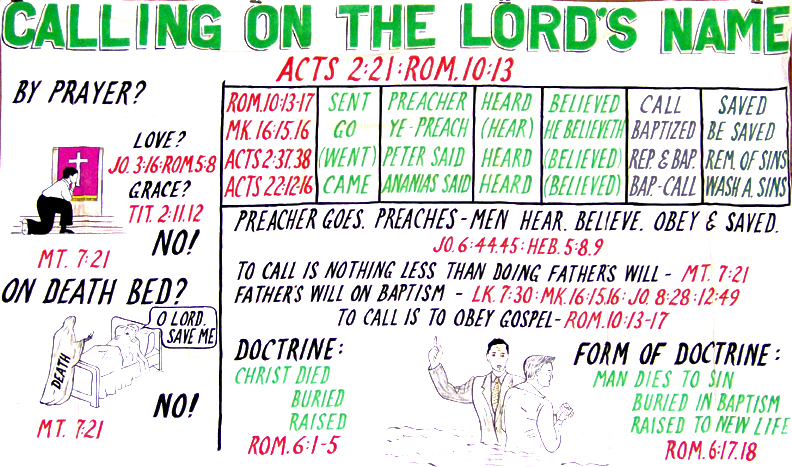 CALLING ON THE LORD'S NAME
ACTS 2:21:ROM.10:13
BY PRAYER?
LOVE?
JO.3:16:ROM.5:8
GRACE?
TIT. 2:11.12
NO!
MT. 7:21
ON DEATH BED?
O LORD.
SAVE ME
DEATH
NO!
MT. 7:21
ROM.10:13-17 SENT PREACHER HEARD BELIEVED CALL SAVED
MK.16:15.16 GO YE-PREACH (HEAR) HE BELIEVETH BAPTIZED BE SAVED
ACTS 2:37.38 (WENT) PETER SAID HEARD (BELIEVED) REP & BAP. REM. OF SINS
ACTS 22:12-16 CAME ANANIAS SAID HEARD (BELIEVED) BAP.-CALL WASH A. SINS
PREACHER GOES. PREACHES - MEN HEAR. BELIEVE. OBEY & SAVED.
JO. 6:44.45: HEB. 5:8.9
TO CALL IS NOTHING LESS THAN DOING FATHER'S WILL - MT. 7:21
FATHER'S WILL ON BAPTISM - LK. 7:30: MK.16:15.16: JO. 8:28:12:49
TO CALL IS TO OBEY GOSPEL-ROM.10:13-17
DOCTRINE:
CHRIST DIED
BURIED
RAISED
ROM. 6:1-5
FORM OF DOCTRINE:
MAN DIES TO SIN
BURIED IN BAPTISM
RAISED TO NEW LIFE
ROM. 6:17.18